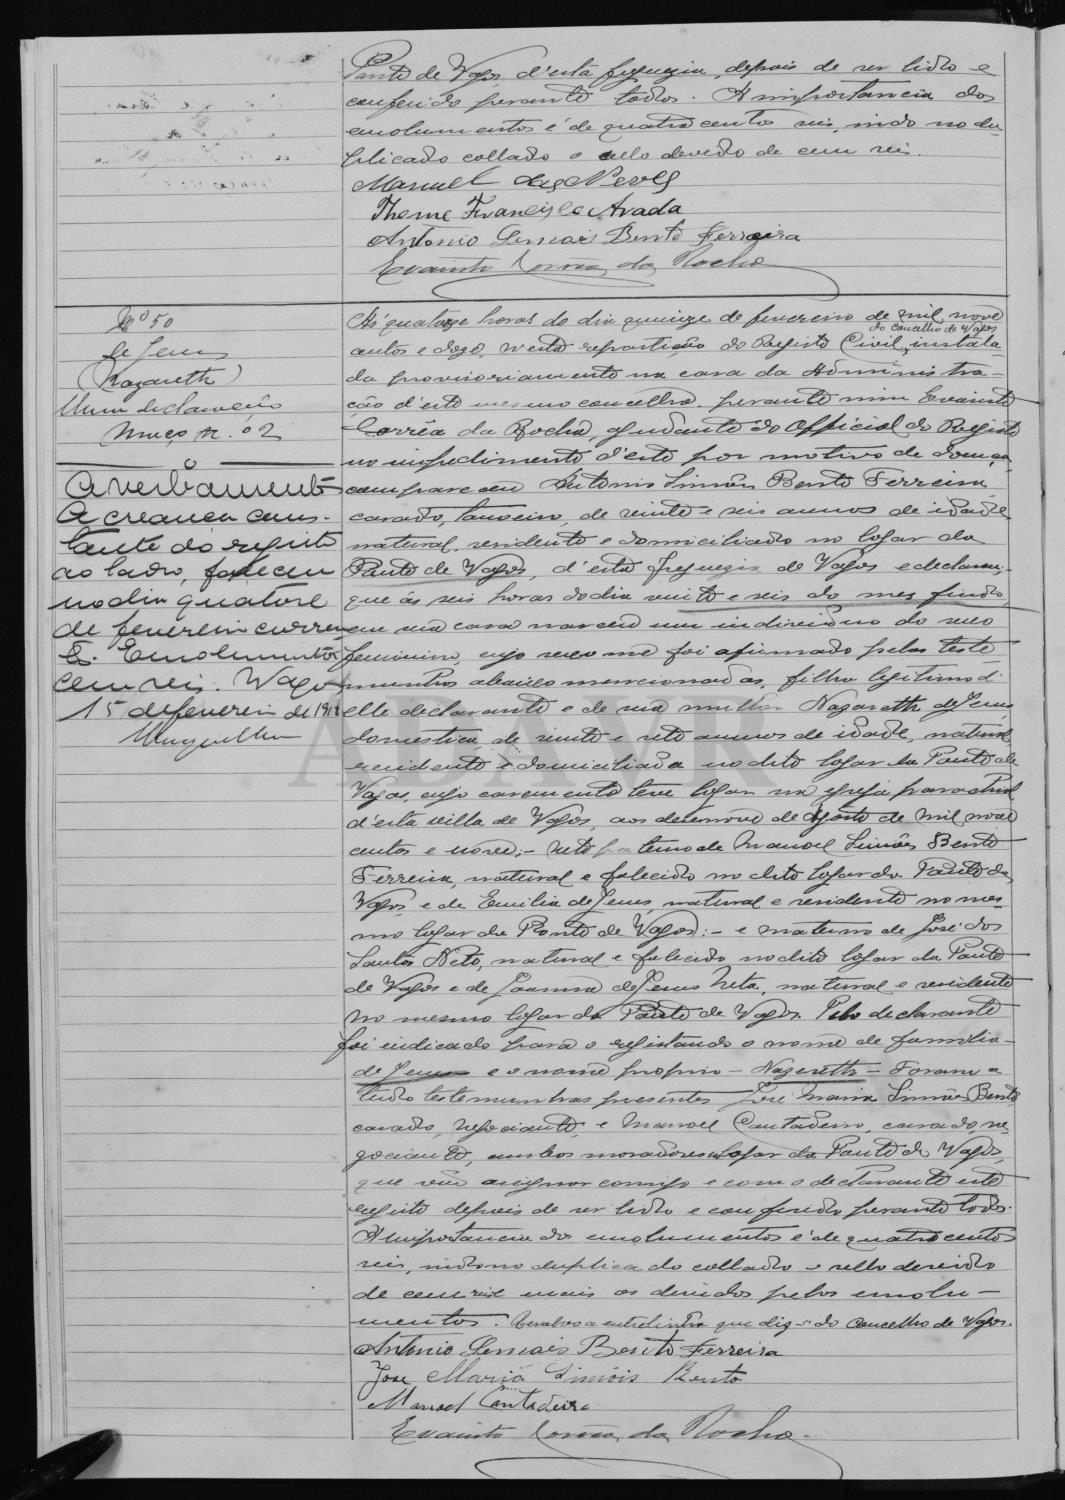 Ponte de Vagos, d'esta freguezia, depois de ser lido e
conferido perante todos. A importancia dos
emolumentos é de quatrocentos reis, indo no du-
plicado collado o sello devido de cem reis.
Manuel das Neves
Thome Francisco Arada
Antonio Simois Bento Ferreira
Evaristo Corrêa da Rocha
Nº 50
de Jesus
(Nazareth)
Uma declaração
Maço n.º 2
Averbamento
A creança cons-
tante do registo
ao lado, faleceu
no dia quatorse
de fevereiro corren-
te. Emolumentos
cem reis. Vagos
15 de fevereiro de 1912
As quatorze horas do dia quinze de fevereiro de mil nove
do concelho de Vagos
centos e doze, n'esta repartição do Registo Civil, instala-
da provisoriamente na casa da Administra-
ção d'este mesmo concelho, perante mim Evaristo
Corrêa da Rocha, ajudante do Official do Registo
no impedimento d'este por motivo de doença
compareceu Antonio Simões Bento Ferreira
casado, tanoeiro, de vinte e seis annos de idade
natural, residente e domiciliado no logar da
Ponte de Vagos, d'esta freguezia de Vagos e declarou,
que ás seis horas do dia vinte e seis do mez findo,
em sua casa nasceu um individuo do sexo
femenino, cujo sexo me foi afirmado pelas teste-
munhas abaixo mencionadas, filha legitima d'
elle declarante e de sua mulher Nazareth de Jesus
domestica, de vinte e oito annos de idade, natural,
residente e domiciliada no dito logar da Ponte de
Vagos, cujo casamento teve logar na egreja parochial
d'esta villa de Vagos, aos desenove de Agosto de mil nove
centos e nove;- neto paterno de Manoel Simões Bento
Ferreira, natural e falecido no dito logar da Ponte de
Vagos e de Emilia de Jesus, natural e residente no mes-
mo logar da Ponte de Vagos:- e materno de José dos
Santos Neto, natural e falecido no dito logar da Ponte
de Vagos e de Joanna de Jesus Neta, natural e residente
no mesmo logar da Ponte de Vagos. Pelo declarante
foi indicado para o registando o nome de familia-
de Jesus e o nome proprio - Nazareth - Foram a
tudo testemunhas presentes José Maria Simões Bento,
casado, negociante, e Manoel Cantadeiro, casado, ne-
gociante, ambos moradores logar da Ponte de Vagos,
que vão assignar comigo e com o declarante este
registo depois de ser lido e conferido perante todos.
A importancia dos emolumentos é de quatrocentos
reis, indo no duplicado collado o sello devido
de cem reis mais os devidos pelos emolu-
mentos. Resalvo a entrelinha que diz - do concelho de Vagos.
Antonio Simois Bento Ferreira
Jose Maria Simóis Bento
Manoel Cantadeiro
Evaristo Corrêa da Rocha